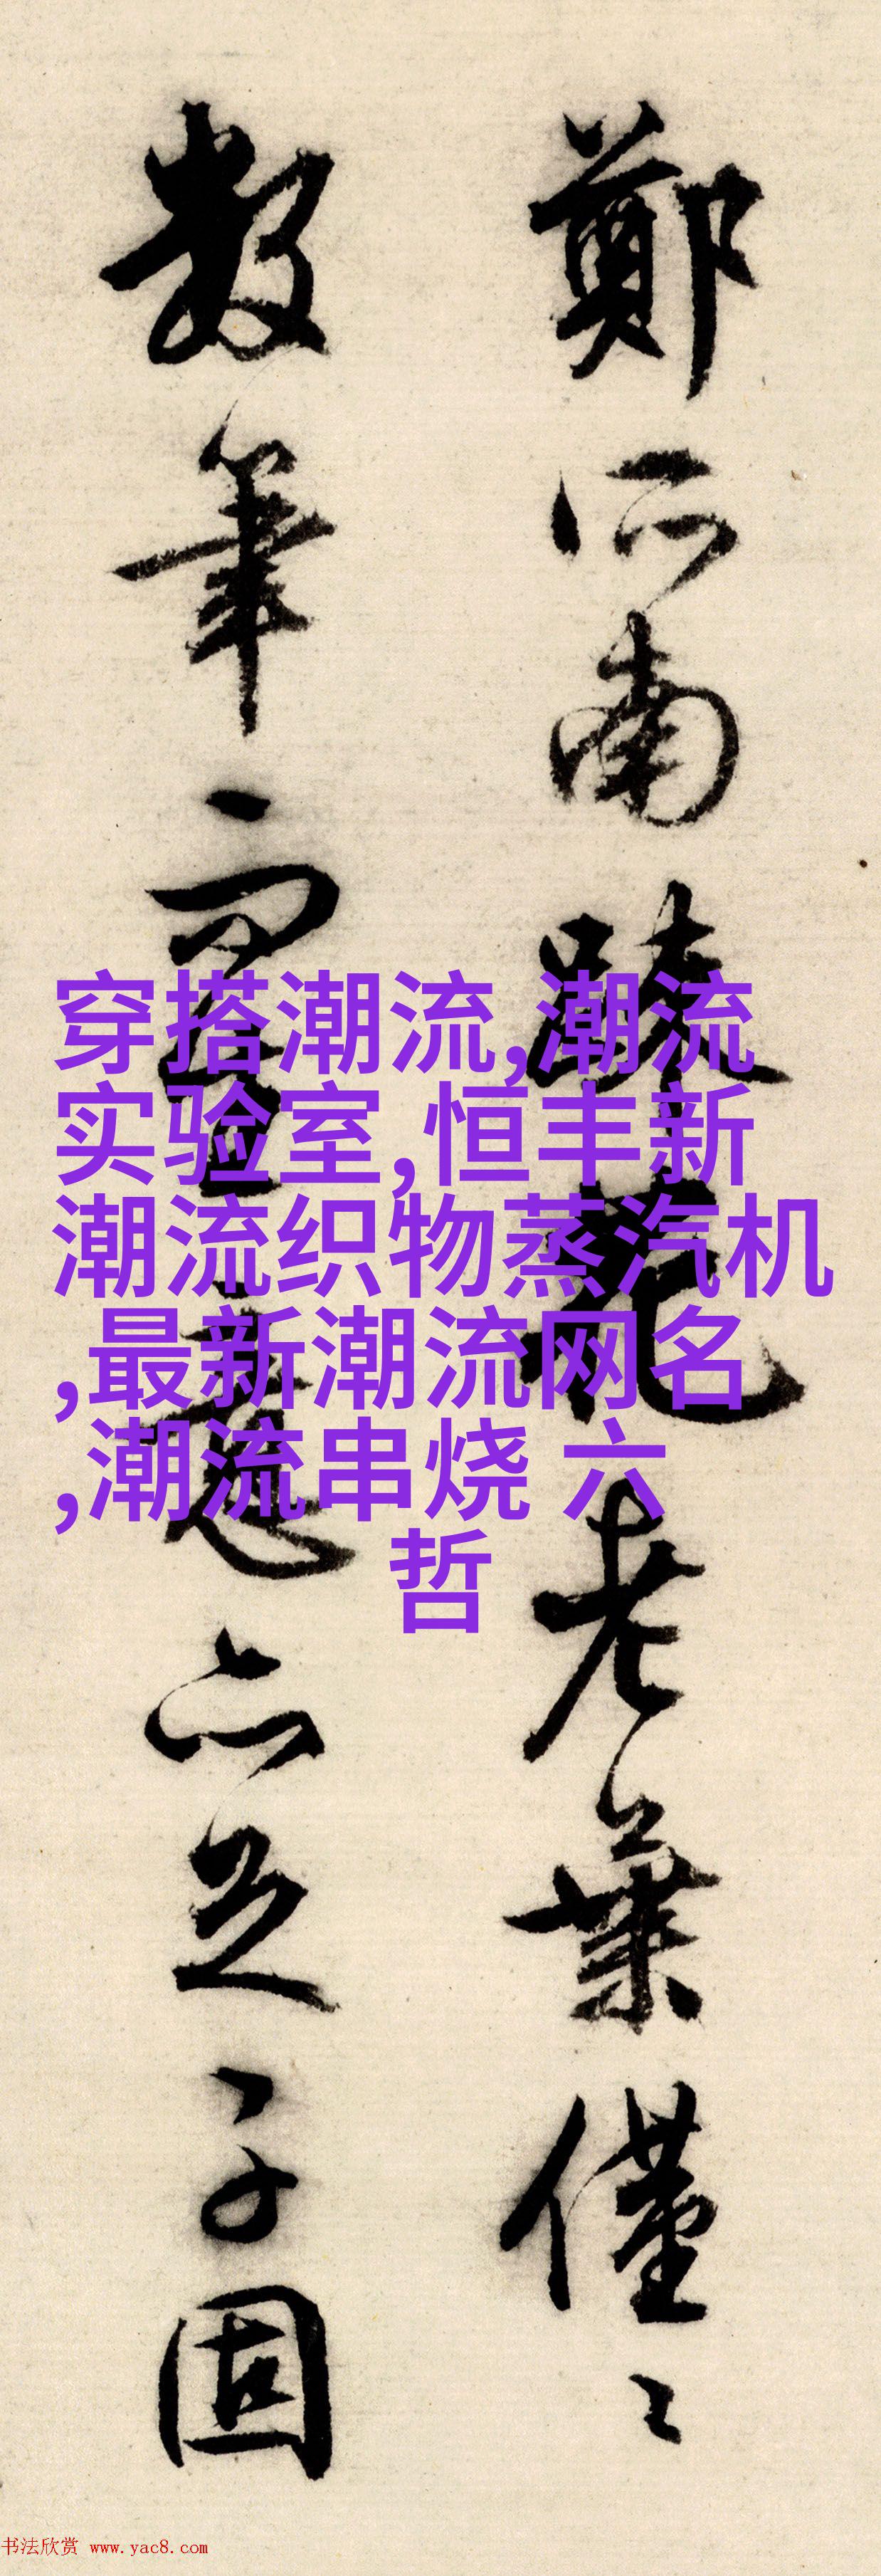 鄭所南疎花老葉僅〻
數筆而靈意亦足子固
穿搭潮流,潮流
实验室,恒丰新
潮流织物蒸汽机
,最新潮流网名
,潮流串烧 六
哲
书法欣赏 www.yac8.com